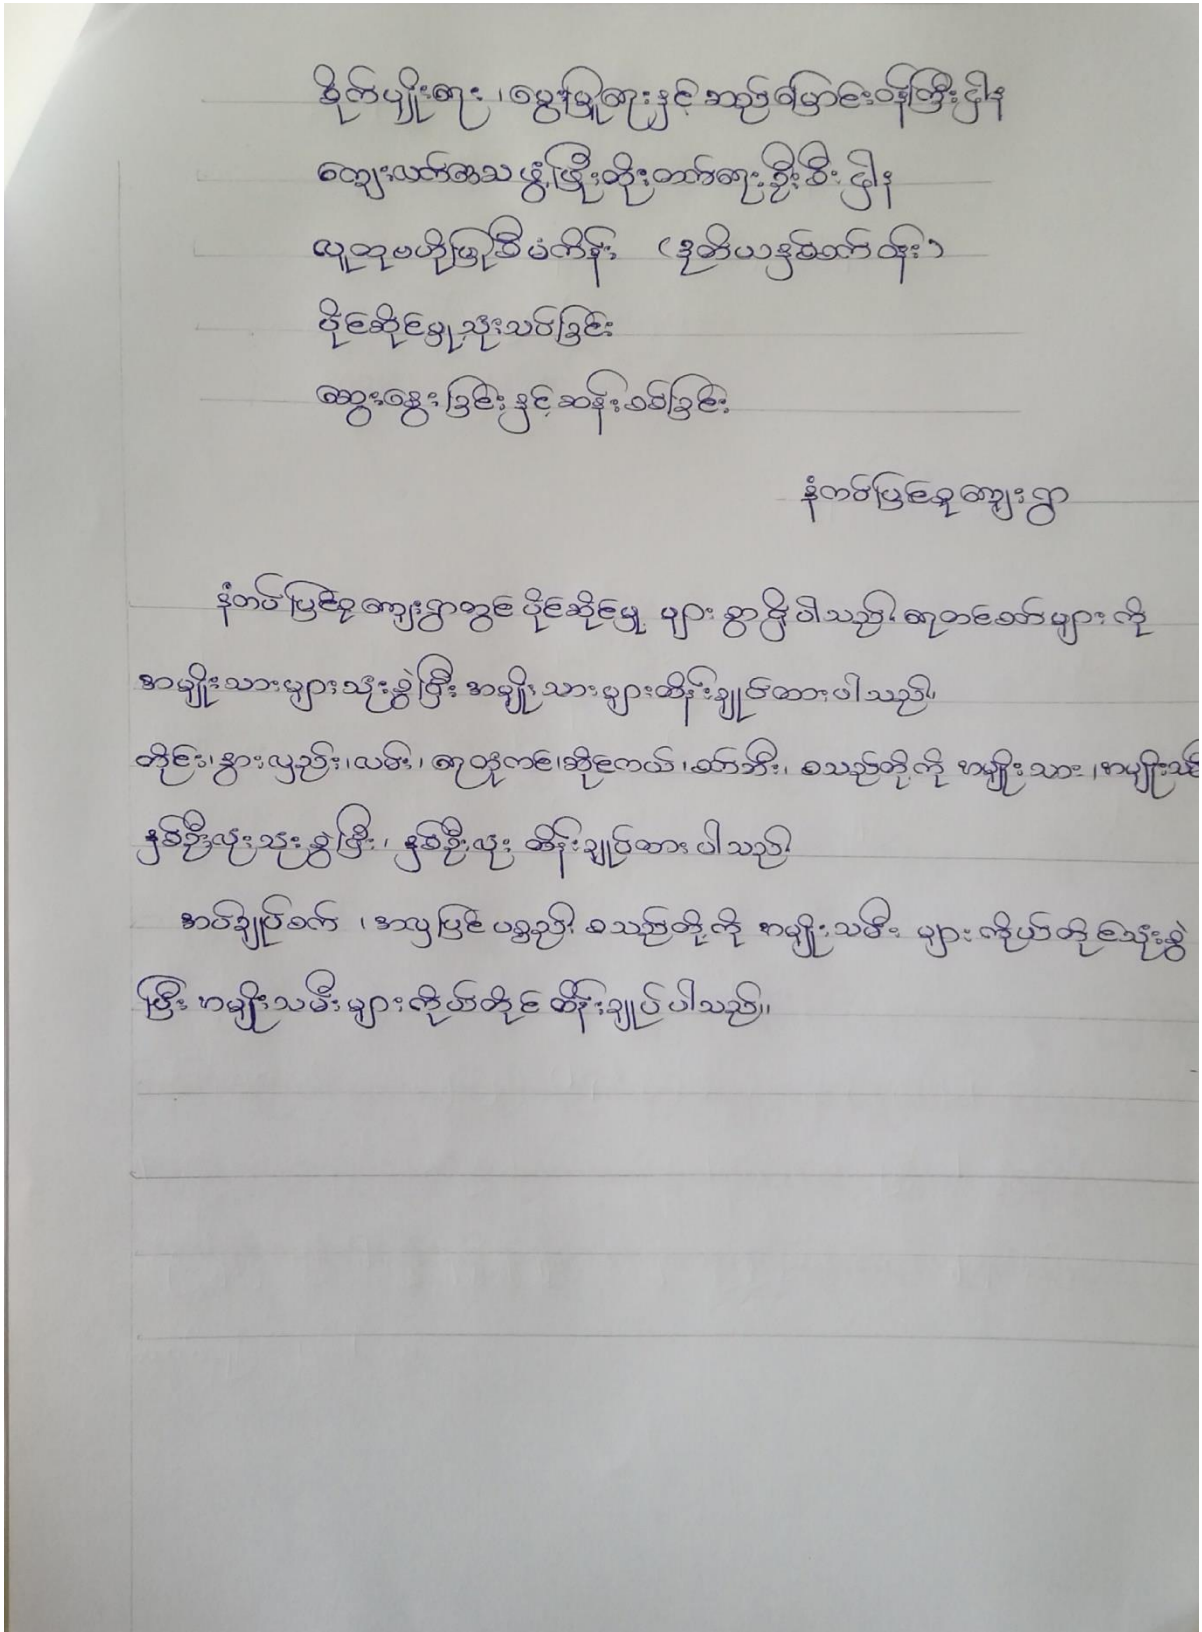 စိုက်ပျိုးရေး ၊ မွေးမြူရေးနှင့် ဆည်မြောင်းဝန်ကြီးဌာန
ကျေးလက်ဒေသ ဖွံ့ဖြိုးတိုးတက်ရေးဦးစီးဌာန
လူထုဗဟိုပြုစီမံကိန်း (ဒုတိယနှစ်ဝက်ဝန်း)
ပိုင်ဆိုင်မှုသုံးသပ်ခြင်း
ဆွေးနွေးခြင်းနှင့်ဆန်းစစ်ခြင်း
နံကပ်ပြင်စုကျေးရွာ
နံတပ်ပြင်စုကျေးရွာတွင် ပိုင်ဆိုင်မှု များစွာရှိပါသည်၊ ရေတင်စက်များကို
အမျိုးသားများသုံးစွဲပြီး အမျိုးသားများထိန်းချုပ်ထားပါသည်၊
ထိုင်း၊ နွားလှည်း၊ လမ်း၊ ရေတွင်းကင်၊ ဆိုင်ကယ်၊ စက်ဘီး၊ စသည်တို့ကို အမျိုးသား ၊ အမျိုးသမီး
နှစ်ဦးလုံးသုံးစွဲပြီး၊ နှစ်ဦးလုံး ထိန်းချုပ်ထားပါသည်၊
အပ်ချုပ်စက် ၊ အလှပြင်ပစ္စည်း စသည်တို့ကို အမျိုးသမီး များကိုယ်တိုင်သုံးစွဲ
ပြီး အမျိုးသမီးများကိုယ်တိုင် ထိန်းချုပ်ပါသည်။